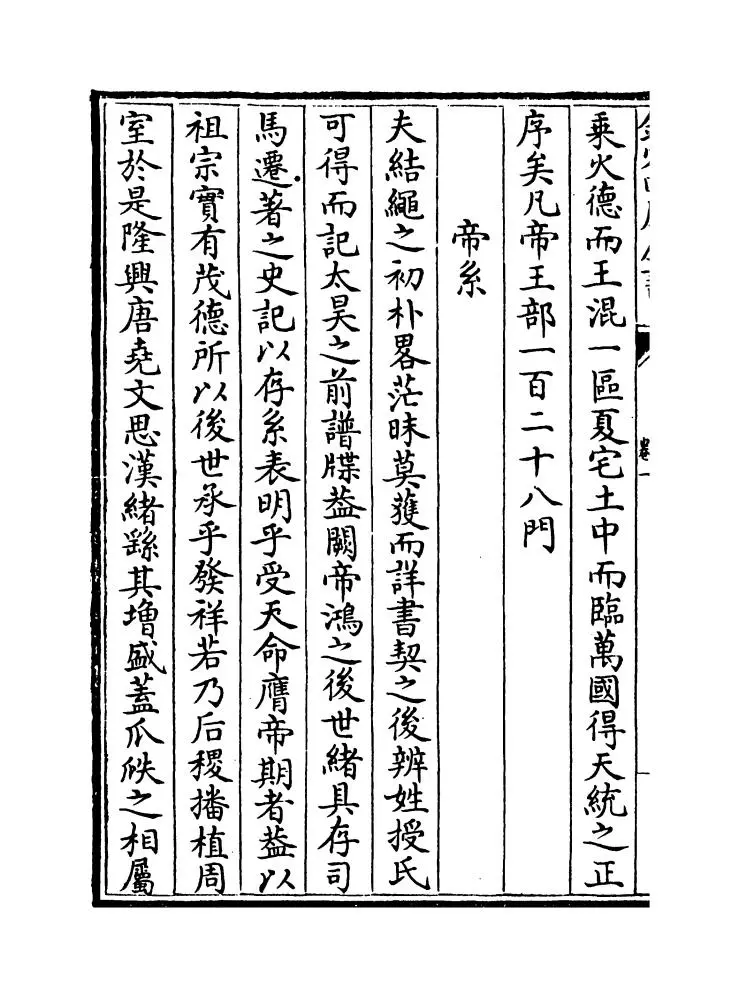 乘火德而王混一區夏宅土中而臨萬國得天統之正
序矣凡帝王部一百二十八門
帝系
夫結繩之初朴畧茫昧莫獲而詳書契之後辨姓授氏
可得而記太昊之前譜牒葢闕帝鴻之後世緒具存司
馬遷著之史記以存系表明乎受天命膺帝期者葢以
祖宗實有茂德所以後世承乎發祥若乃后稷播植周
室於是隆興唐堯文思漢緒繇其增盛蓋瓜瓞之相屬
卷一